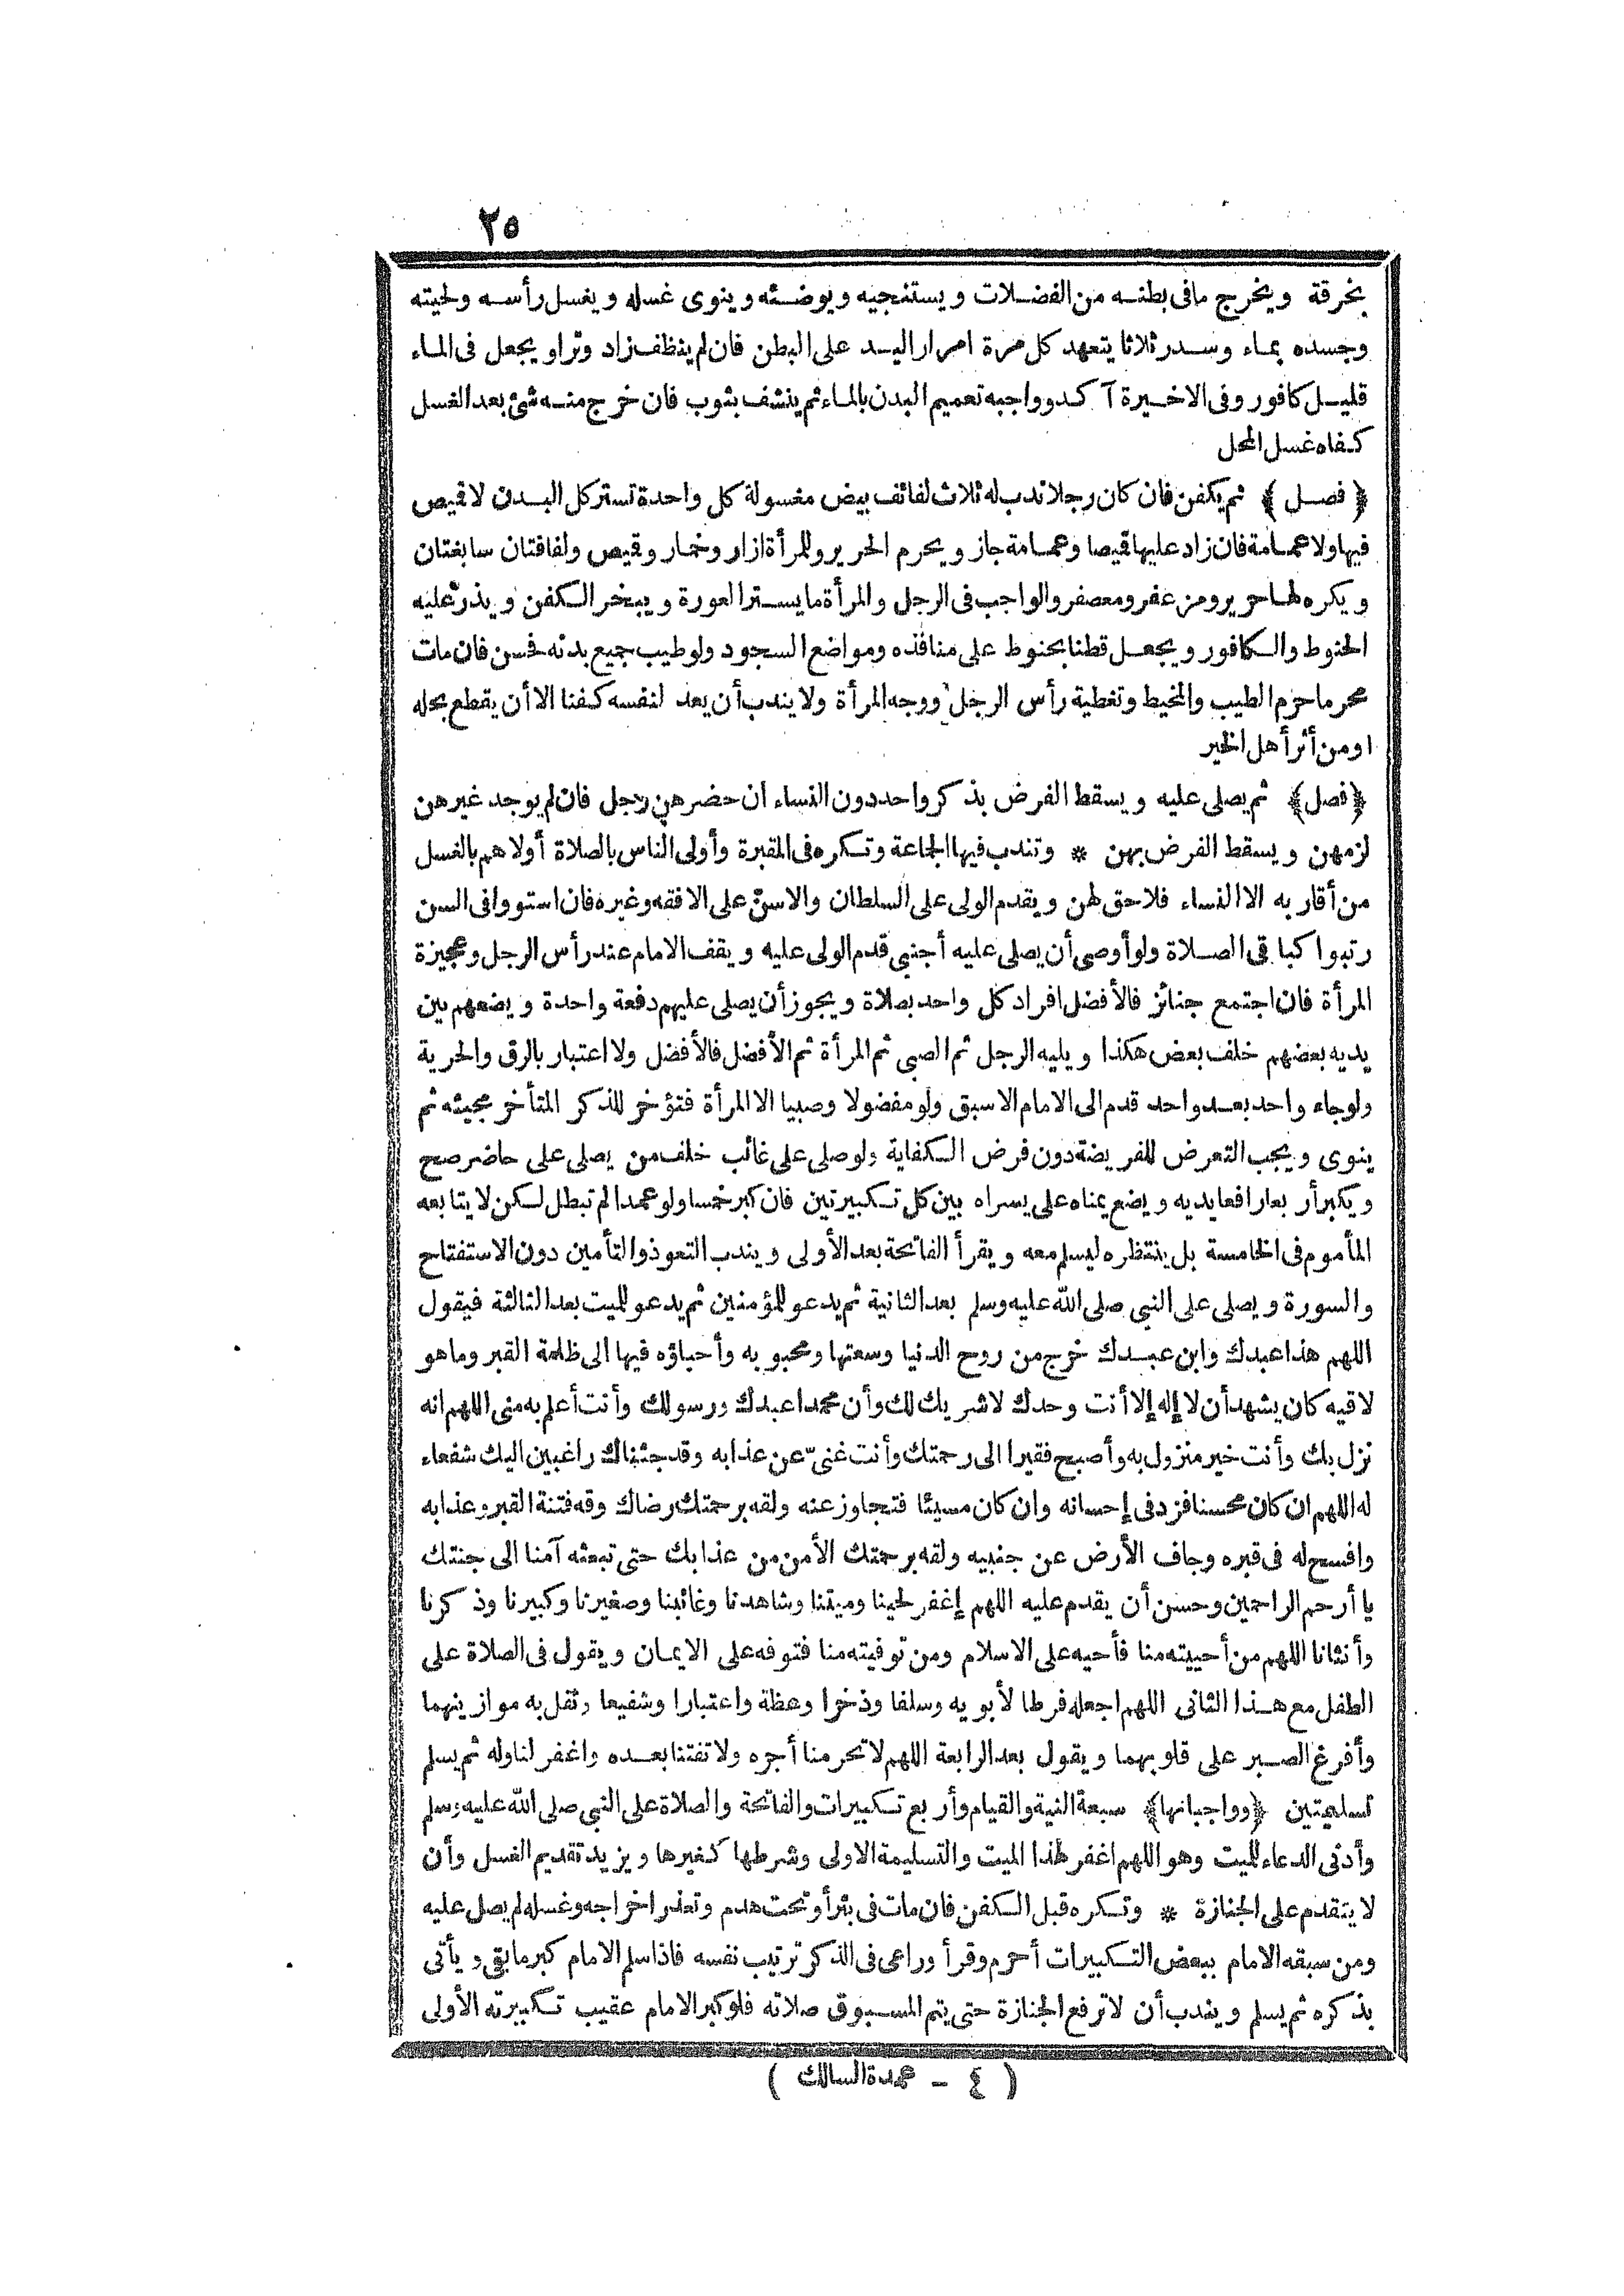 ٢٥
بخرقة ويخرج مافى بطنه من الفضلات ويستنجيه ويوضئه وينوى غسله ويغسل رأسه ولحيته
وجسده بماء وسدر ثلاثا يتعهد كل مرة امرار اليد على البطن فان لم ينظف زاد وترا ويجعل فى الماء
قليل كافور وفى الاخيرة آكد وواجبه تعميم البدن بالماء ثم ينشف بثوب فان خرج منه شئ بعد الغسل
كفاه غسل المحل
﴿ فصل ﴾ ثم يكفن فان كان رجلا ندب له ثلاث لفائف بيض مغسولة كل واحدة تستر كل البدن لا قميص
فيها ولا عمامة فان زاد عليها قميصا وعمامة جاز ويحرم الحرير وللمرأة ازار وخمار وقميص ولفافتان سابغتان
ويكره لها حرير ومزعفر ومعصفر والواجب فى الرجل والمرأة ما يستر العورة ويبخر الكفن ويذرّ عليه
الحنوط والكافور ويجعل قطنا بحنوط على منافذه ومواضع السجود ولو طيب جميع بدنه فحسن فان مات
محرما حرم الطيب والمخيط وتغطية رأس الرجل ووجه المرأة ولا يندب أن يعد لنفسه كفنا الا أن يقطع بحله
او من أثر أهل الخير
﴿فصل﴾ ثم يصلى عليه ويسقط الفرض بذكر واحد دون النساء ان حضرهن رجل فان لم يوجد غيرهن
لزمهن ويسقط الفرض بهن * وتندب فيها الجماعة وتكره فى المقبرة وأولى الناس بالصلاة أولاهم بالغسل
من أقاربه الا النساء فلا حق لهن ويقدم الولى على السلطان والاسنّ على الافقه وغيره فان استووا فى السن
رتبوا كباقى الصلاة ولو أوصى أن يصلى عليه أجنبى قدم الولى عليه ويقف الامام عند رأس الرجل وعجيزة
المرأة فان اجتمع جنائز فالأفضل افراد كل واحد بصلاة ويجوز أن يصلى عليهم دفعة واحدة ويضعهم بين
يديه بعضهم خلف بعض هكذا ويليه الرجل ثم الصبى ثم المرأة ثم الأفضل فالأفضل ولا اعتبار بالرق والحرية
ولو جاء واحد بعد واحد قدم الى الامام الاسبق ولو مفضولا وصبيا الا المرأة فتؤخر للذكر المتأخر مجيئه ثم
ينوى ويجب التعرض للفريضة دون فرض الكفاية ولو صلى على غائب خلف من يصلى على حاضر صح
ويكبر أربعا رافعا يديه ويضع يمناه على يسراه بين كل تكبيرتين فان كبر خمسا ولو عمدا لم تبطل لكن لا يتابعه
المأموم فى الخامسة بل ينتظره ليسلم معه ويقرأ الفاتحة بعد الأولى ويندب التعوذ والتأمين دون الاستفتاح
والسورة ويصلى على النبى صلى الله عليه وسلم بعد الثانية ثم يدعو للمؤمنين ثم يدعو للميت بعد الثالثة فيقول
اللهم هذا عبدك وابن عبدك خرج من روح الدنيا وسعتها ومحبوبه وأحباؤه فيها الى ظلمة القبر وما هو
لاقيه كان يشهد أن لا إله إلا أنت وحدك لا شريك لك وأن محمدا عبدك ورسولك وأنت أعلم به منى اللهم انه
نزل بك وأنت خير منزول به وأصبح فقيرا الى رحمتك وأنت غنىّ عن عذابه وقد جئناك راغبين اليك شفعاء
له اللهم ان كان محسنا فزد فى إحسانه وان كان مسيئا فتجاوز عنه ولقه برحمتك رضاك وقه فتنة القبر وعذابه
وافسح له فى قبره وجاف الأرض عن جنبيه ولقه برحمتك الأمن من عذابك حتى تبعثه آمنا الى جنتك
يا أرحم الراحمين وحسن أن يقدم عليه اللهم إغفر لحينا وميتنا وشاهدنا وغائبنا وصغيرنا وكبيرنا وذكرنا
وأنثانا اللهم من أحييته منا فأحيه على الاسلام ومن توفيته منا فتوفه على الايمان ويقول فى الصلاة على
الطفل مع هذا الثانى اللهم اجعله فرطا لأبويه وسلفا وذخرا وعظة واعتبارا وشفيعا وثقل به موازينهما
وأفرغ الصبر على قلوبهما ويقول بعد الرابعة اللهم لا تحرمنا أجره ولا تفتنا بعده واغفر لنا وله ثم يسلم
تسليمتين ﴿وواجباتها﴾ سبعة النية والقيام وأربع تكبيرات والفاتحة والصلاة على النبى صلى الله عليه وسلم
وأدنى الدعاء للميت وهو اللهم اغفر لهذا الميت والتسليمة الاولى وشرطها كغيرها ويزيد تقديم الغسل وأن
لا يتقدم على الجنازة * وتكره قبل الكفن فان مات فى بئر أو تحت هدم وتعذر اخراجه وغسله لم يصل عليه
ومن سبقه الامام ببعض التكبيرات أحرم وقرأ وراعى فى الذكر ترتيب نفسه فاذا سلم الامام كبر ما بقى ويأتى
بذكره ثم يسلم ويندب أن لا ترفع الجنازة حتى يتم المسبوق صلاته فلو كبر الامام عقيب تكبيرته الأولى
( ٤ - عمدة السالك )